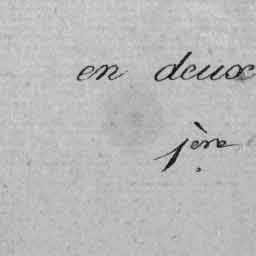 en deux
1ère